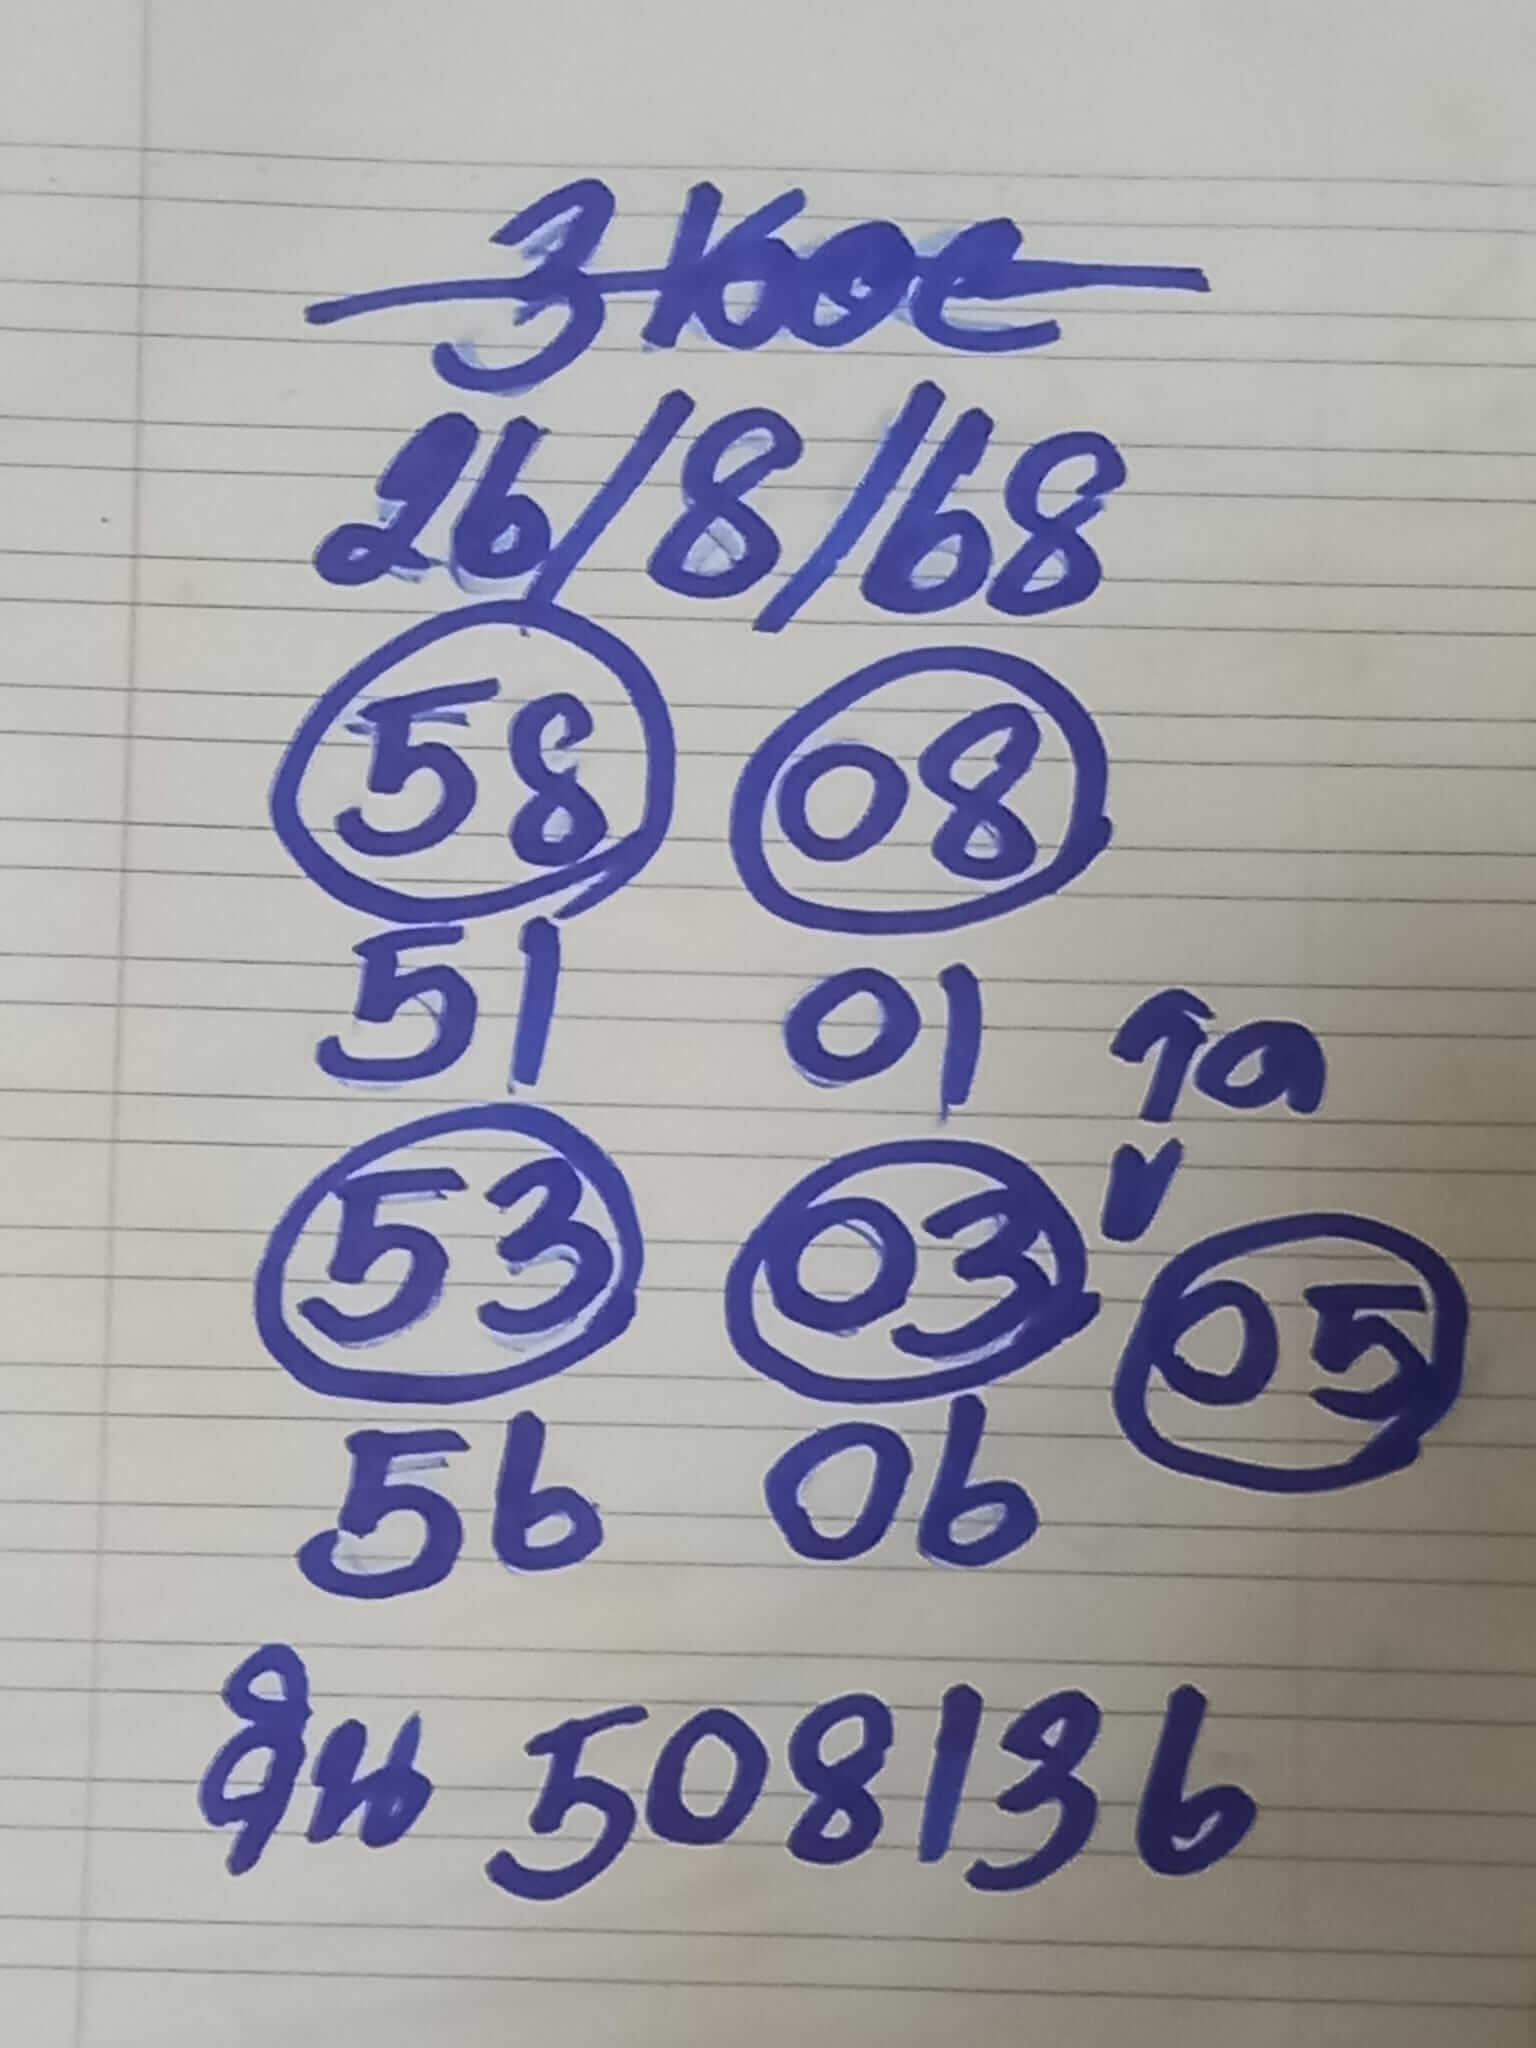 26/8/68
58 08
51 01 รูด
53 03 05
56 06
วิน 508136